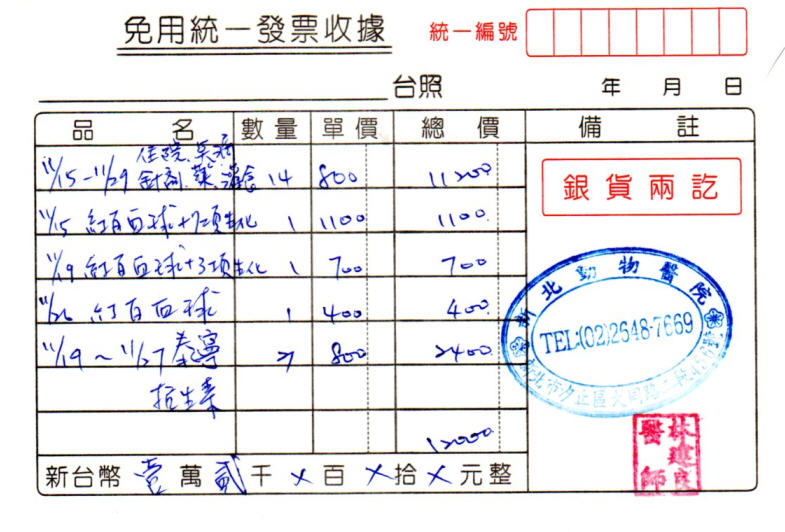 免用統一發票收據 統一編號
台照 年 月 日
品 名 數量 單價 總 價 備 註
住院.
11/15-11/29 針劑.藥 14 800 11200
11/15 紅白血球+7項生化 1 1100 1100
11/19 紅白血球+3項生化 1 700 700
11/26 紅白血球 1 400 400
11/19~11/27 800 2400
抗生素
12000
新台幣 壹 萬 貳 千 × 百 × 拾 × 元整
銀貨兩訖
新北動物醫院
TEL:(02)2648-7669
新北市汐止區大同路二段
林建良
醫師